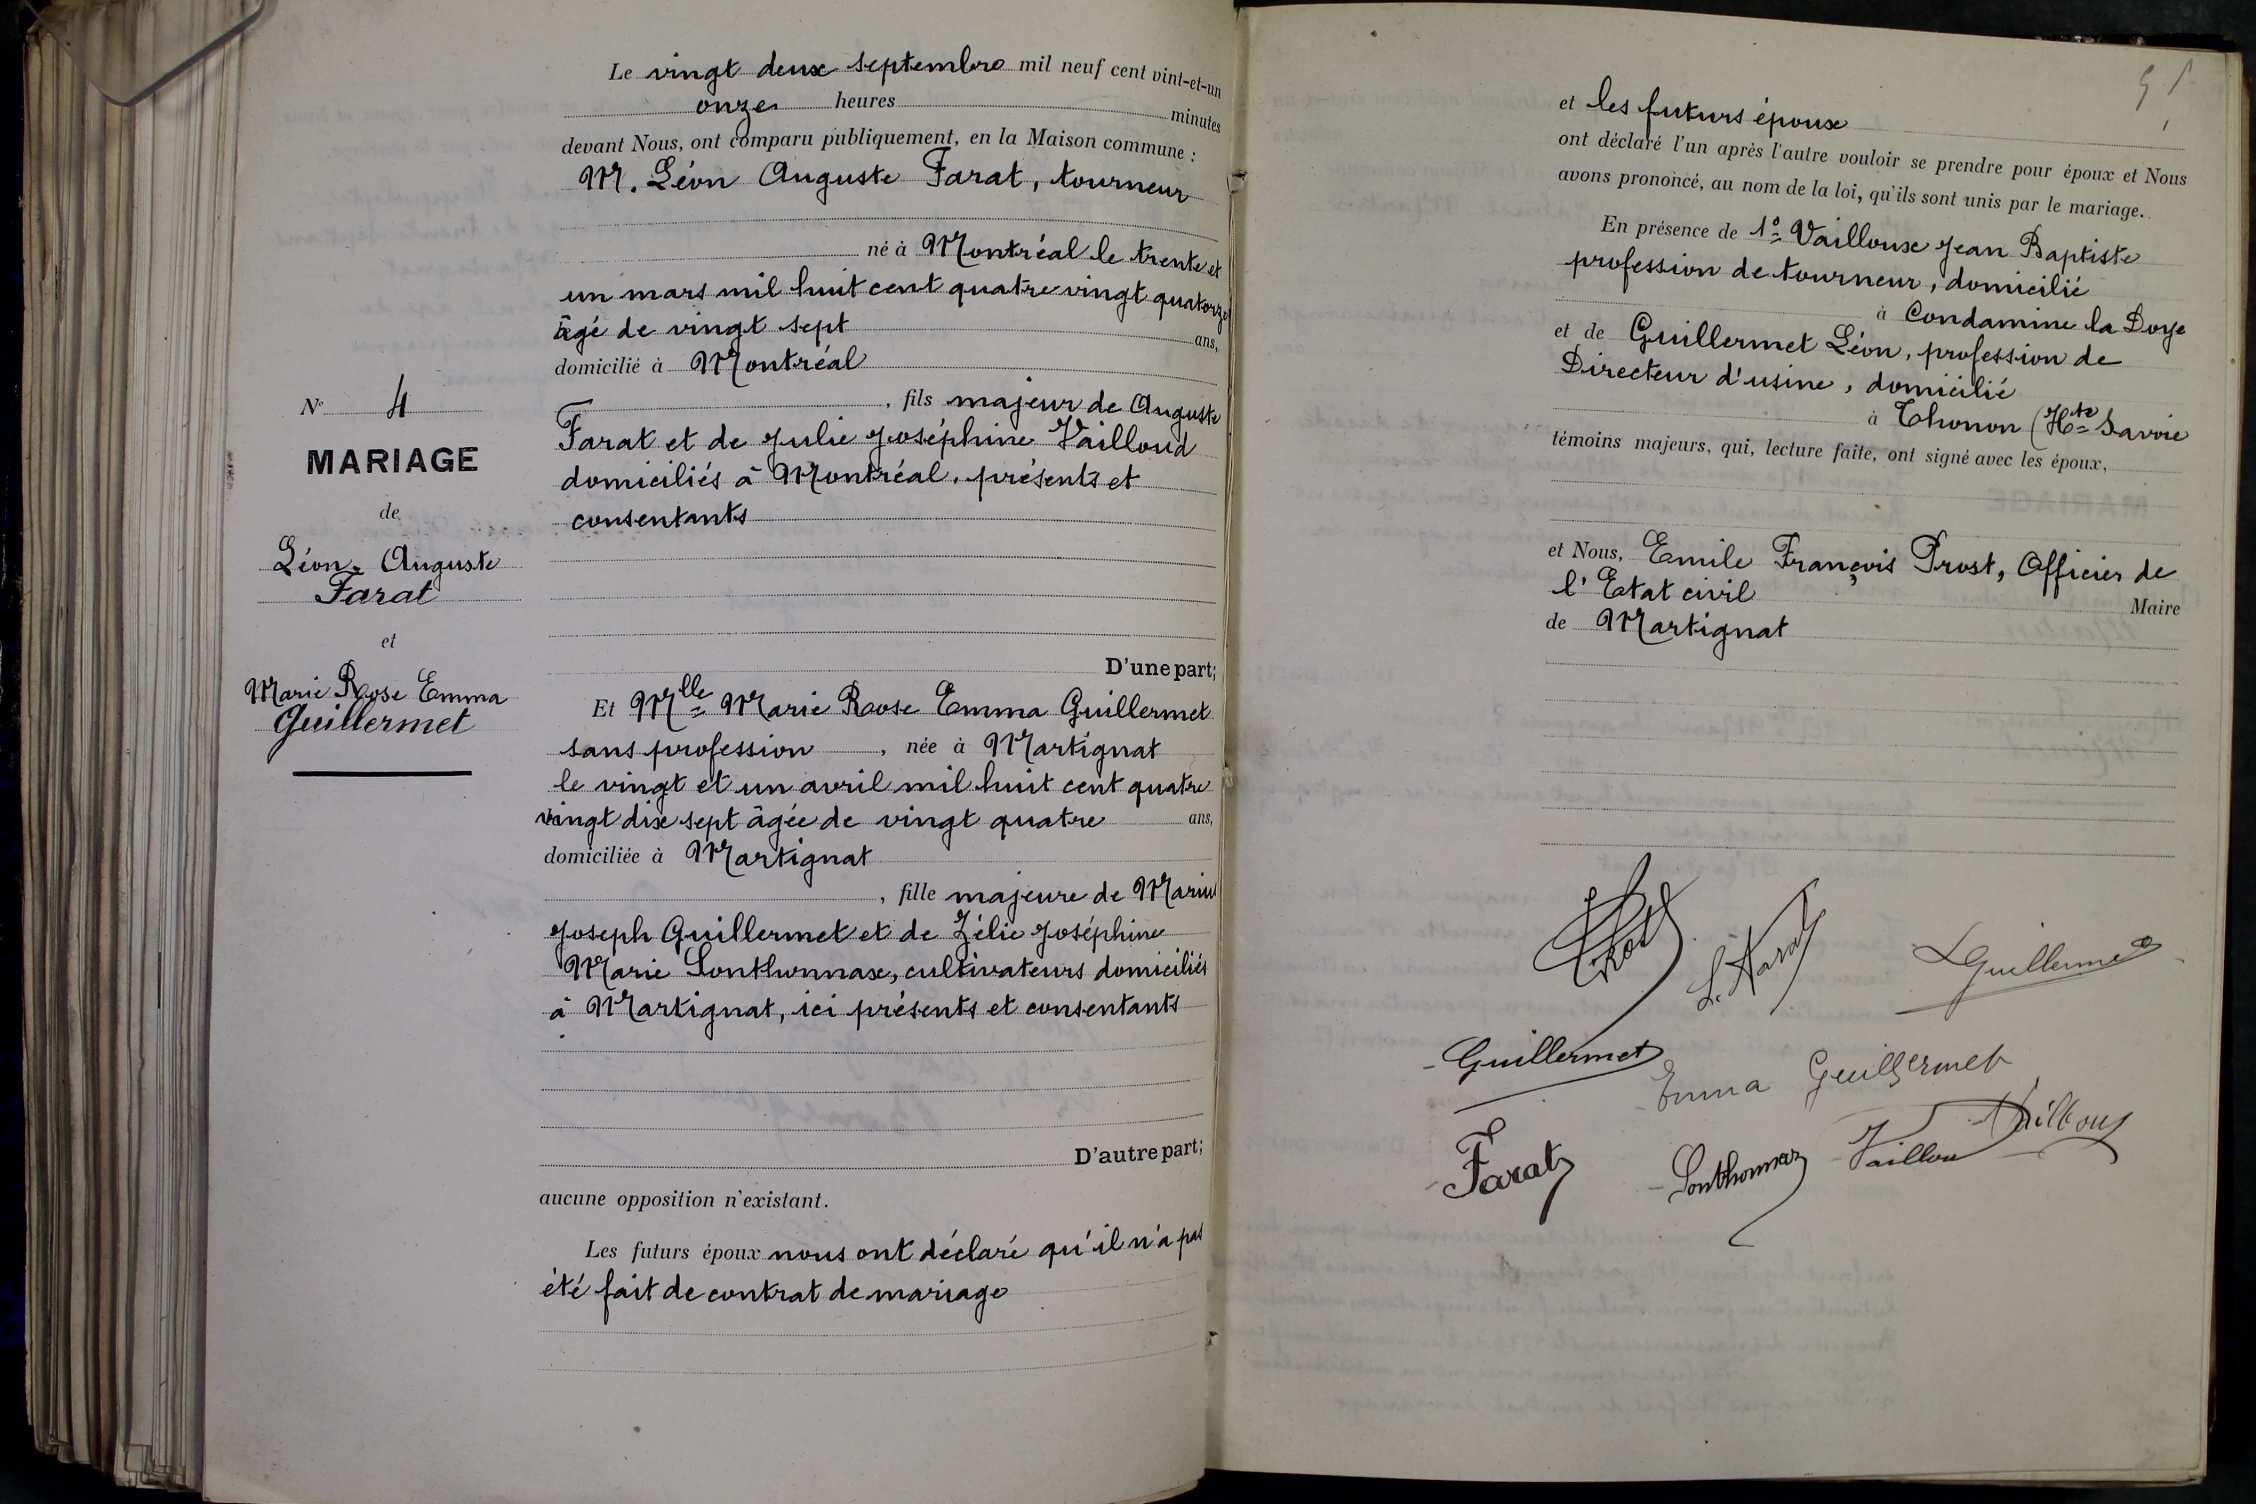 Le vingt deux septembre mil neuf cent vint-et-un
onze heures minutes
devant Nous, ont comparu publiquement, en la Maison commune :
M. Léon Auguste Farat, tourneur
né à Montréal le trente et
un mars mil huit cent quatre vingt quatorze
âgé de vingt sept ans,
domicilié à Montréal
, fils majeur de Auguste
Farat et de Julie Joséphine Vailloud
domiciliés à Montréal, présents et
consentants
D'une part;
Et Mlle Marie Rose Emma Guillermet
sans profession, née à Martignat
le vingt et un avril mil huit cent quatre
vingt dix sept âgée de vingt quatre ans,
domiciliée à Martignat
, fille majeure de Marius
Joseph Guillermet et de Zélie Joséphine
Marie Sonthonnax, cultivateurs domiciliés
à Martignat, ici présents et consentants
D'autre part;
aucune opposition n'existant.
Les futurs époux nous ont déclaré qu'il n'a pas
été fait de contrat de mariage
No 4
MARIAGE
de
Léon, Auguste
Farat
et
Marie Rose Emma
Guillermet
et les futurs époux
ont déclaré l'un après l'autre vouloir se prendre pour époux et Nous
avons prononcé, au nom de la loi, qu'ils sont unis par le mariage.
En présence de 1o Vailloux Jean Baptiste
profession de tourneur, domicilié
à Condamine la Doye
et de Guillermet Léon, profession de
Directeur d'usine, domicilié
à Thonon (Hte Savoie
témoins majeurs, qui, lecture faite, ont signé avec les époux,
et Nous, Emile François Prost, Officier de
l'Etat civil Maire
de Martignat
Prost
L. Farat
L Guillermet
Guillermet
Emma Guillermet
Farat
Sonthonnax
Vailloud